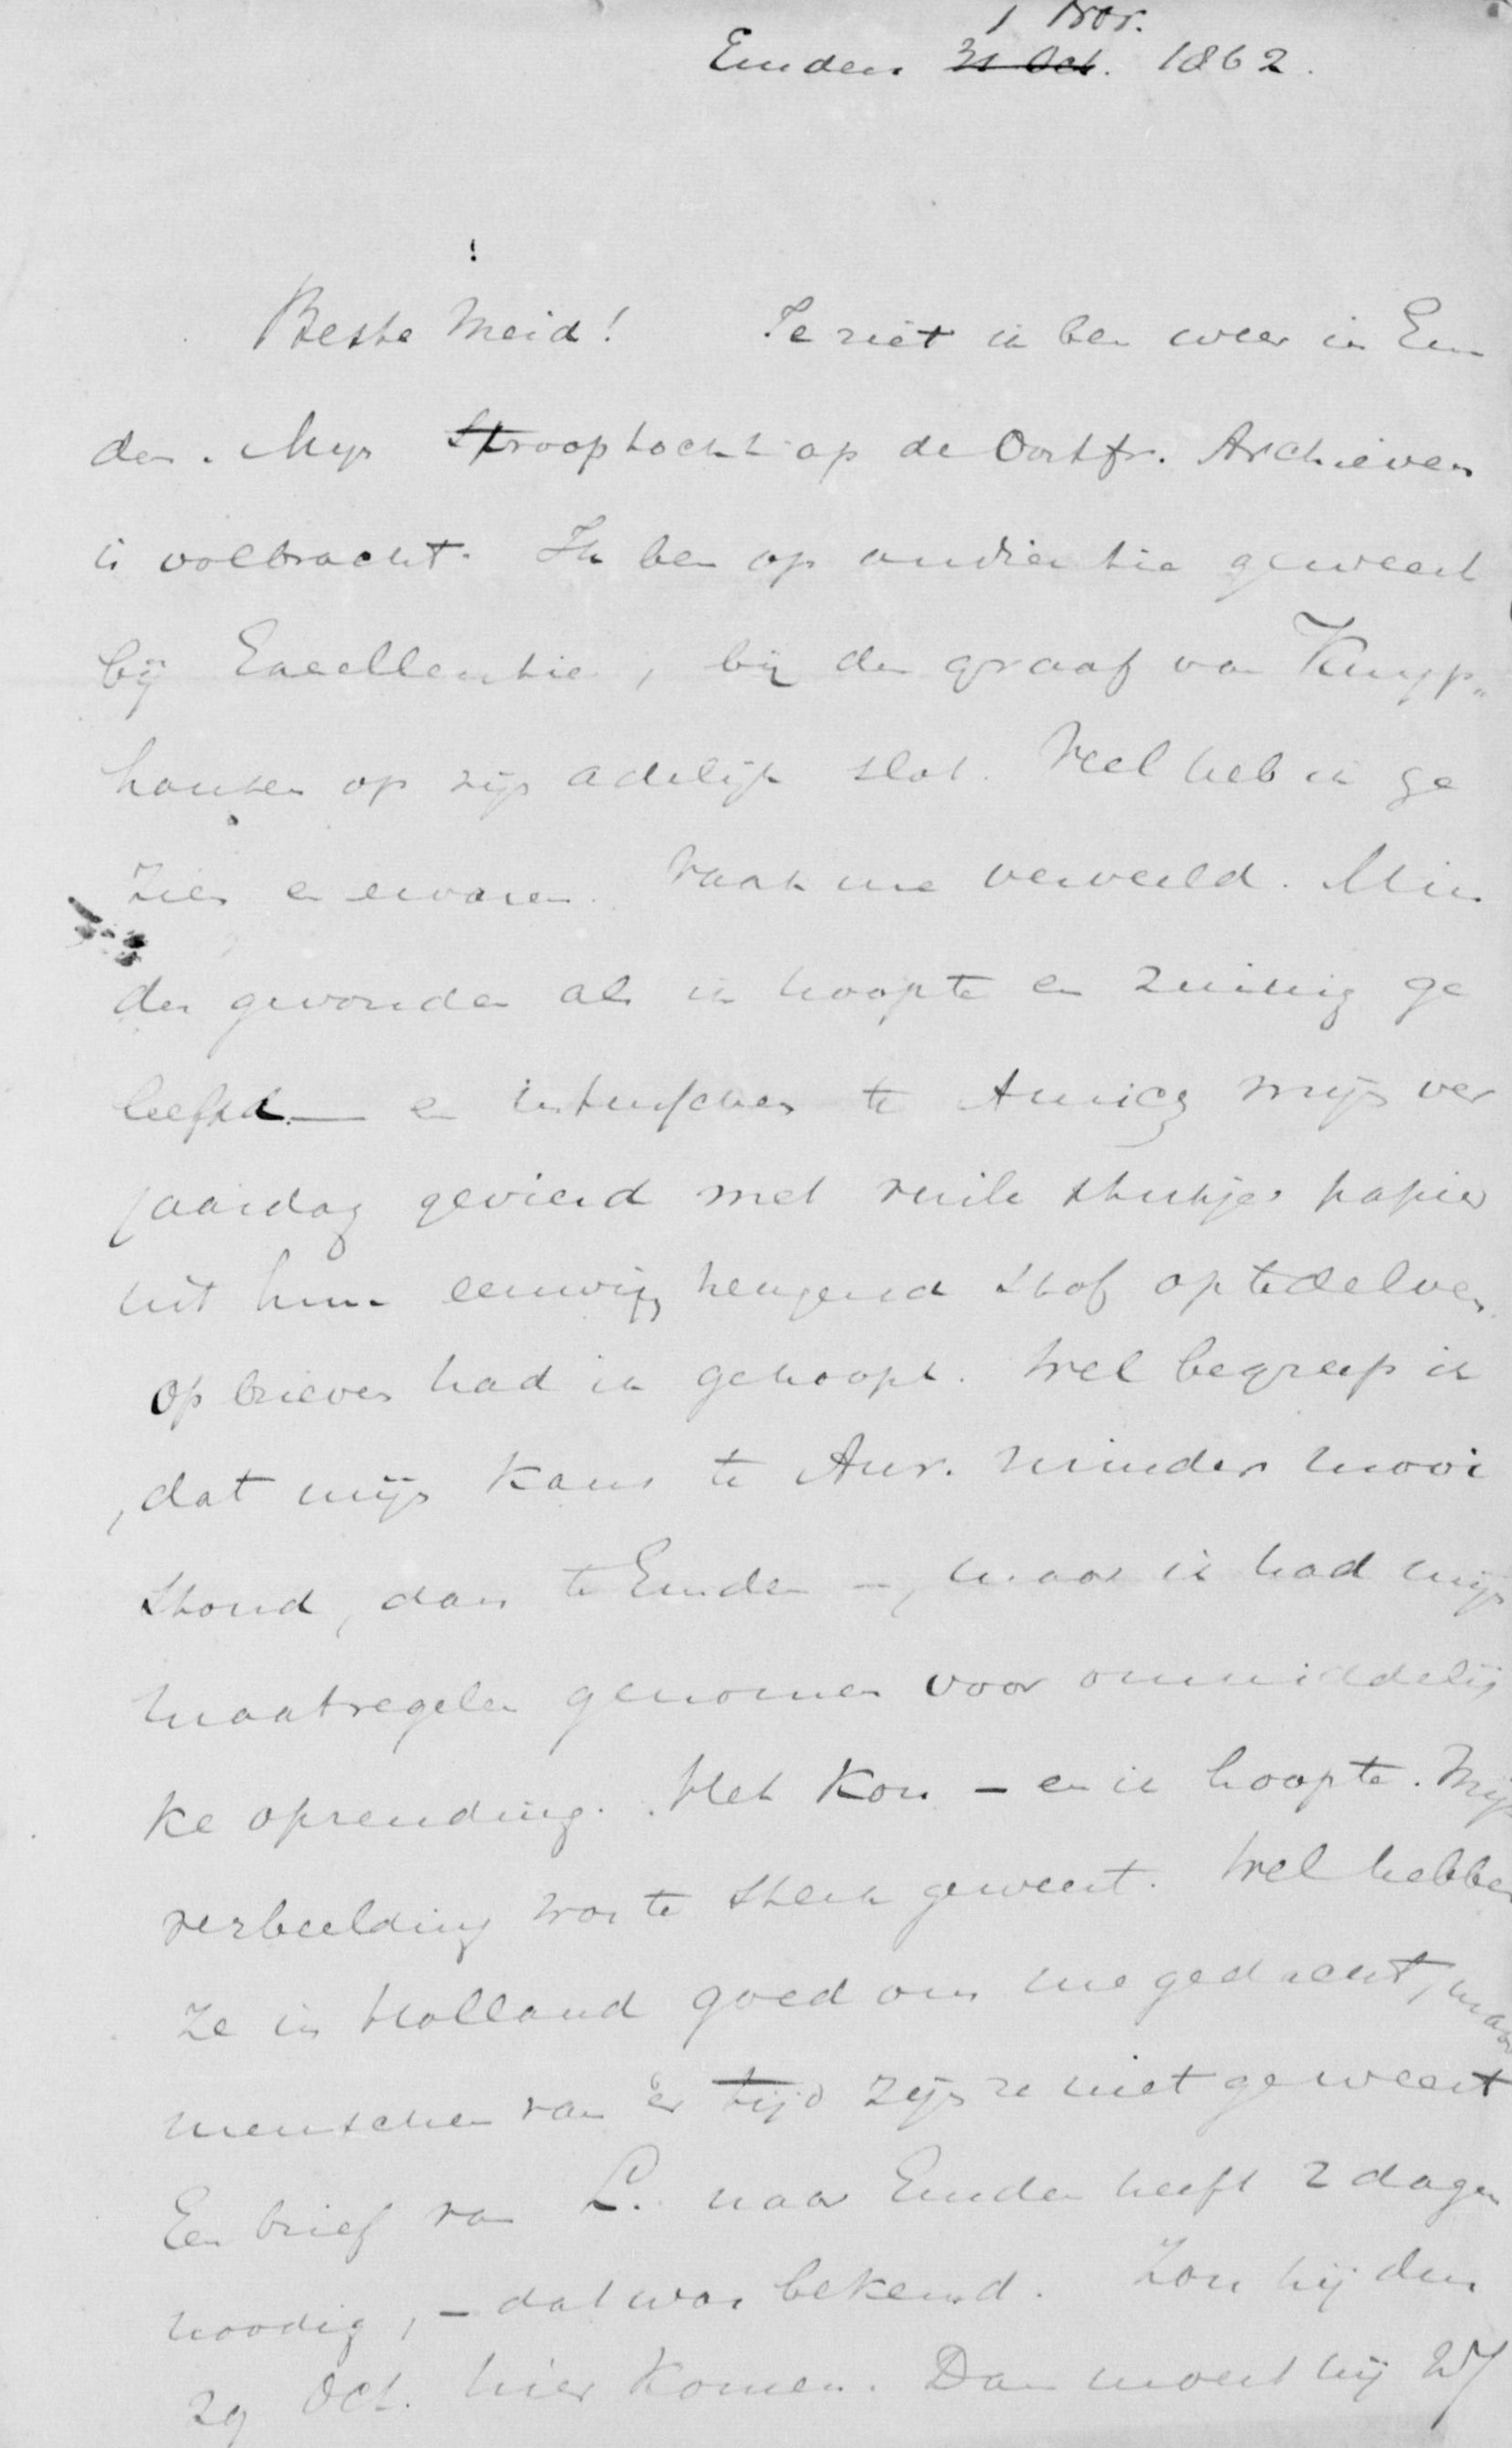 1 Nov.
Emden 31 Oct. 1862.
Beste Meid! Je ziet ik ben weer in Em
den. Mijn strooptocht op de Oostfr. Archieven
is volbracht. Ik ben op audientie geweest
bij Excellentie, bij den graaf van Knyp„
hausen op zijn adelijk slot. Veel heb ik ge
zien en ervaren. Vaak me verveeld. Min
der gevonden als ik hoopte en zuinig ge
leefd — en intusschen te Aurich mijn ver
jaardag gevierd met vuile stukjes papier
uit hun eeuwig heugend stof optedelven
Op brieven had ik gehoopt. Wel begreep ik
, dat mijn kans te Aur. minder mooi
stond, dan te Emden —, maar ik had mijn
maatregelen genomen voor onmiddelij
ke opzending. Het kon – en ik hoopte. Mijn
verbeelding was te sterk geweest. Wel hebben
ze in Holland goed om me gedacht, maar
menschen van 'er tijd zijn ze niet geweest
Een brief van L. naar Emden heeft 2 dagen
noodig, – dat was bekend. Zou hij den
29 Oct. hier komen. Dan moest hij 27